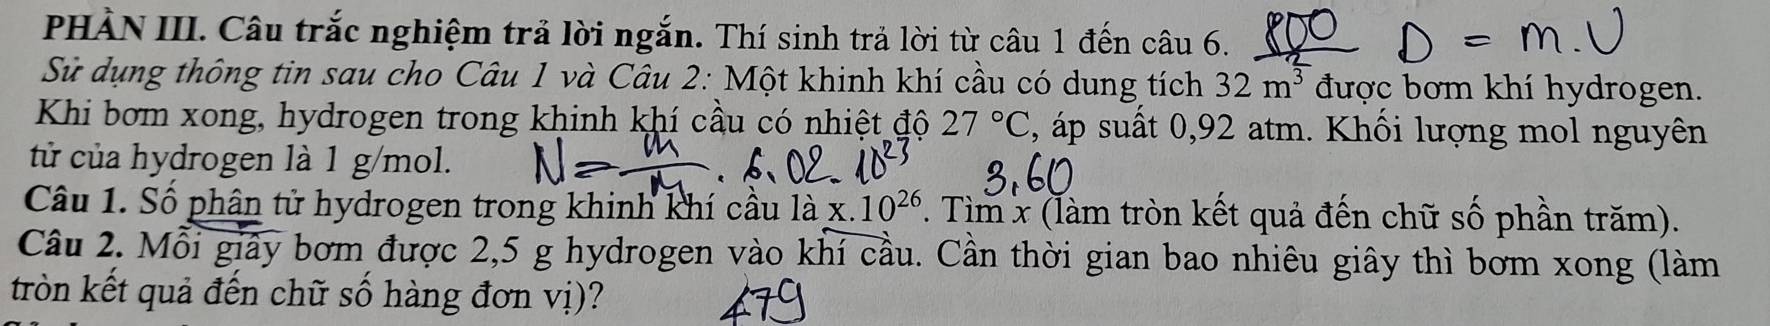 PHẦN III. Câu trắc nghiệm trả lời ngắn. Thí sinh trả lời từ câu 1 đến câu 6. 800/2 D = m.V
Sử dụng thông tin sau cho Câu 1 và Câu 2: Một khinh khí cầu có dung tích 32 m³ được bơm khí hydrogen.
Khi bơm xong, hydrogen trong khinh khí cầu có nhiệt độ 27 °C, áp suất 0,92 atm. Khối lượng mol nguyên
tử của hydrogen là 1 g/mol. N = m/M . 6,02.10²³ 3,60
Câu 1. Số phân tử hydrogen trong khinh khí cầu là x.10²⁶. Tìm x (làm tròn kết quả đến chữ số phần trăm).
Câu 2. Mỗi giây bơm được 2,5 g hydrogen vào khí cầu. Cần thời gian bao nhiêu giây thì bơm xong (làm
tròn kết quả đến chữ số hàng đơn vị)? 479